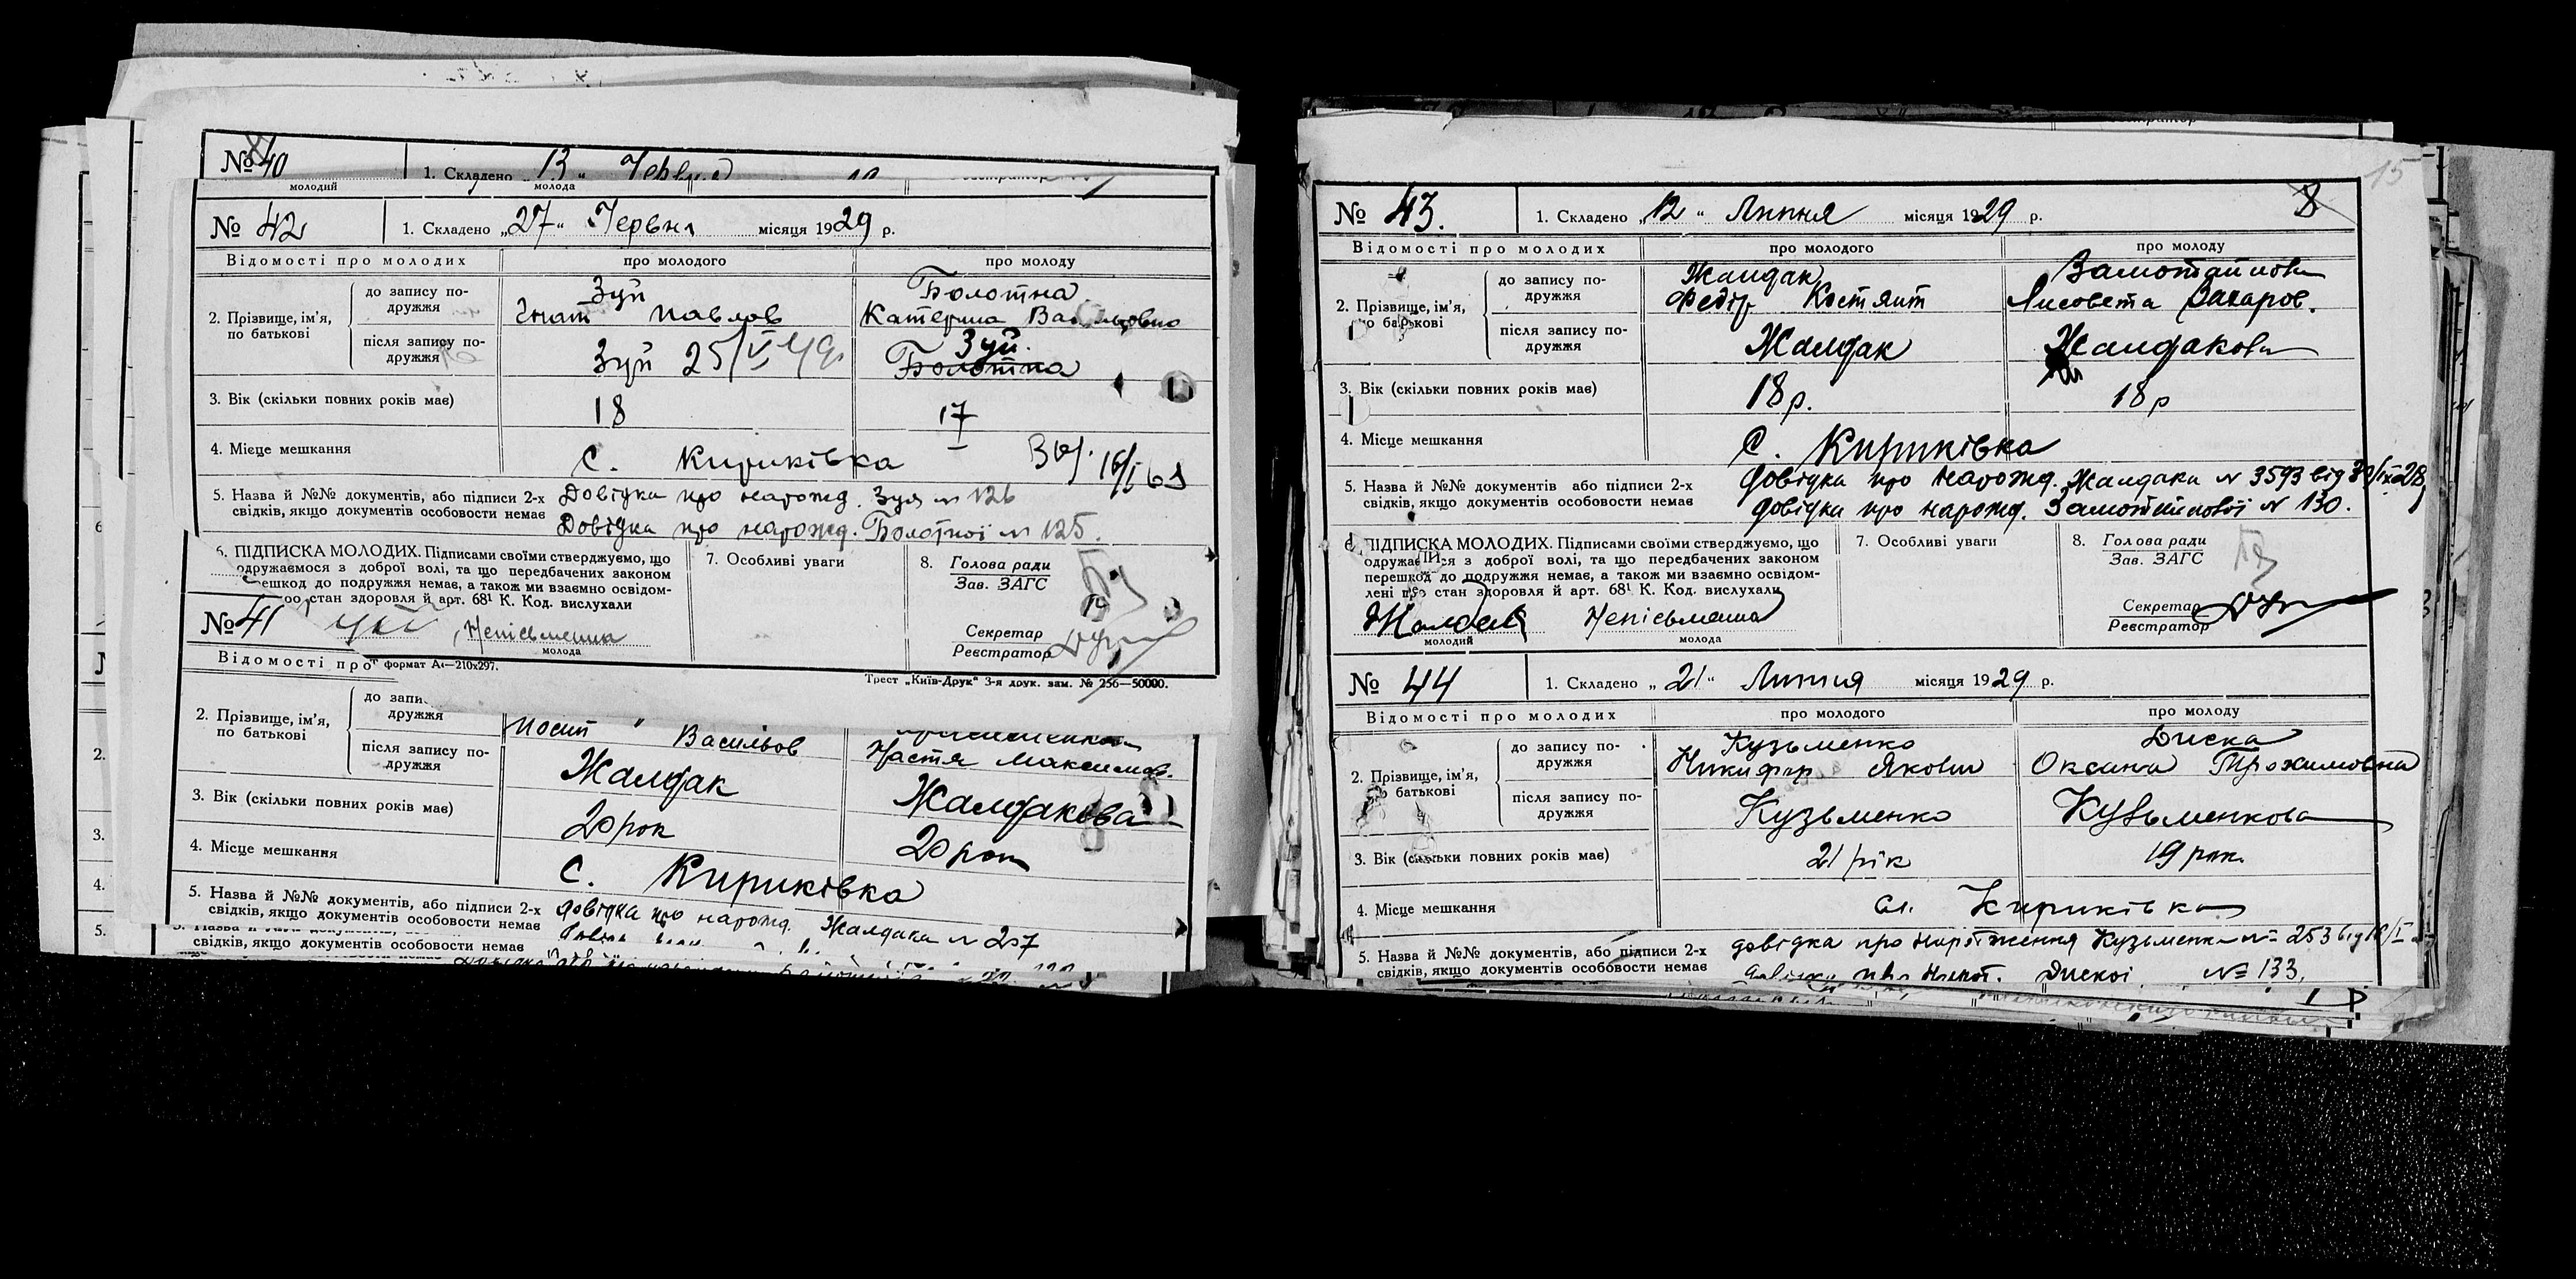 № 40
1. Складено „13“ Червня
молодий
молода
№ 42
1. Складено „27“ Червня місяця 1929 р.
Відомості про молодих
про молодого
про молоду
2. Прізвище, ім'я,
по батькові
до запису по-
дружжя
Зуй
Гнат Павлов
Болотна
Катерина
після запису по-
дружжя
Зуй 25/VI 49
Зуй.
Болотна
3. Вік (скільки повних років має)
18
17
4. Місце мешкання
С. Кириківка
16/I 61
5. Назва й №№ документів, або підписи 2-х
свідків, якщо документів особовости немає
Довідка про нарожд. Зуя № 126
Довідка про нарожд. Болотної № 125.
6. ПІДПИСКА МОЛОДИХ. Підписами своїми стверджуємо, що
одружаємося з доброї волі, та що передбачених законом
решкод до подружжя немає, а також ми взаємно освідом-
стан здоровля й арт. 68¹ К. Код. вислухали
Непісьменна
молода
7. Особливі уваги
8. Голова ради
Зав. ЗАГС
Секретар
Реєстратор
формат А4—210x297.
Трест „Київ-Друк“ 3-я друк. зам. № 256—50000.
№ 41
Відомості про
2. Прізвище, ім'я,
по батькові
до запи
дружжя
Йосип Васильов
Настя Максимов.
після запису по-
дружжя
Жалдак
Жалдакова
3. Вік (скільки повних років має)
20 рок
20 рок
4. Місце мешкання
С. Кириківка
5. Назва й №№ документів, або підписи 2-х
свідків, якщо документів особовости немає
довідка про нарожд. Жалдака № 207
свідків, якщо документів особовости немає
15
8
№ 43.
1. Складено „12“ Липня місяця 1929 р.
Відомості про молодих
про молодого
про молоду
2. Прізвище, ім'я,
по батькові
до запису по-
дружжя
Жалдак
Федір Костянт
Замотайлова
Лисовета Захаров.
після запису по-
дружжя
Жалдак
Жалдакова
3. Вік (скільки повних років має)
18 р.
18 р
4. Місце мешкання
С. Кириківка
5. Назва й №№ документів, або підписи 2-х
свідків, якщо документів особовости немає
довідка про нарожд. Жалдака № 3593 від
довідка про нарожд. Замотайлової № 130.
6. ПІДПИСКА МОЛОДИХ. Підписами своїми стверджуємо, що
одружаємося з доброї волі, та що передбачених законом
перешкод до подружжя немає, а також ми взаємно освідом-
лені про стан здоровля й арт. 68¹ К. Код. вислухали
Жалдак
молодий
Непісьменна
молода
7. Особливі уваги
8. Голова ради
Зав. ЗАГС
Секретар
Реєстратор
№ 44
1. Складено „21“ Липня місяця 1929 р.
Відомості про молодих
про молодого
про молоду
2. Прізвище, ім'я,
по батькові
до запису по-
дружжя
Кузьменко
Никифор Яковл
Диска
Оксана Трохимовна
після запису по-
дружжя
Кузьменко
Кузьменкова
3. Вік (скільки повних років має)
21 рік
19 рок.
4. Місце мешкання
сл. Кириківка
5. Назва й №№ документів, або підписи 2-х
свідків, якщо документів особовости немає
довідка про народження Кузьменка № 253 від
довідка про Дискої № 133.